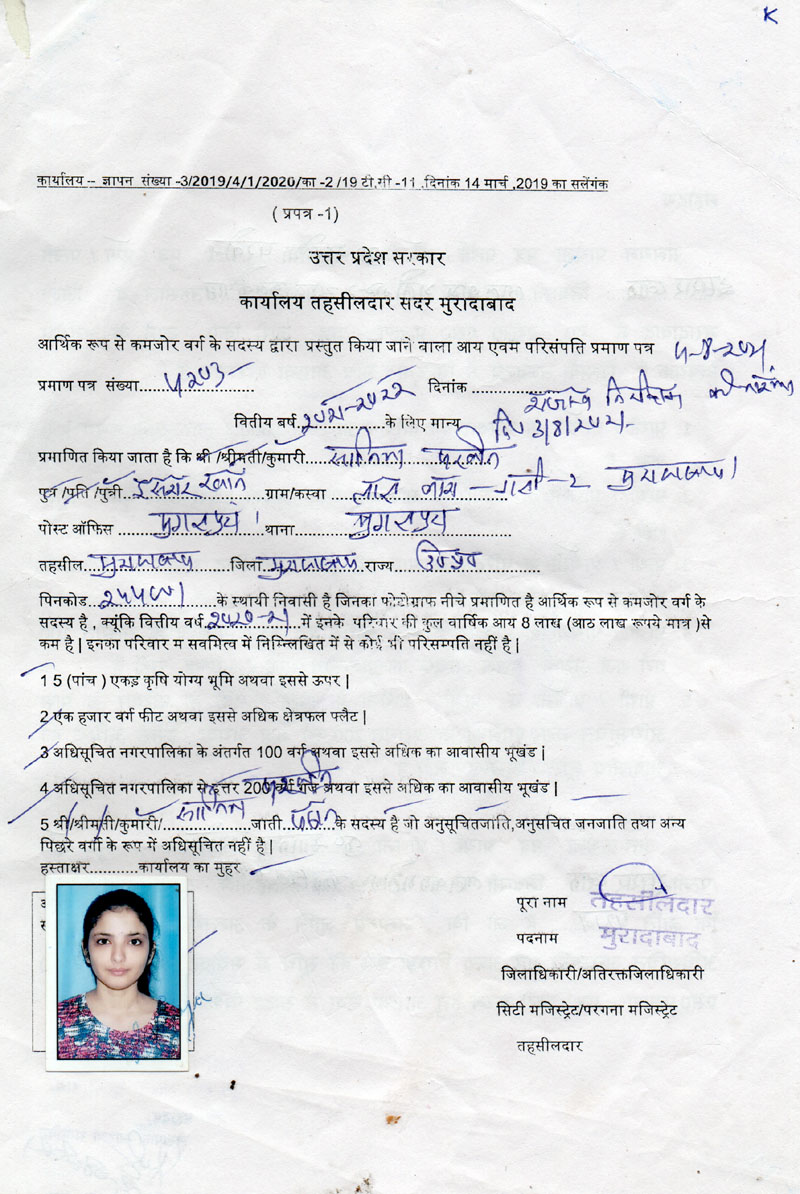 K
कार्यालय – ज्ञापन संख्या -3/2019/4/1/2020/का -2 /19 टी.सी -11 ,दिनांक 14 मार्च ,2019 का सलेंगंक
( प्रपत्र -1)
उत्तर प्रदेश सरकार
कार्यालय तहसीलदार सदर मुरादाबाद
आर्थिक रूप से कमजोर वर्ग के सदस्य द्वारा प्रस्तुत किया जाने वाला आय एवम परिसंपति प्रमाण पत्र
प्रमाण पत्र संख्या..५२०३.. दिनांक ५-८-२०२१
वितीय बर्ष.२०२१-२०२२ के लिए मान्य दि० 3/8/२०२१
प्रमाणित किया जाता है कि श्री /श्रीमती/कुमारी....सानिया परवीन
पुत्र /पति /पुत्री. खान ग्राम/कस्वा लाल बाग – गली – २ मुरादाबाद।
पोस्ट ऑफिस मुगलपुरा थाना मुगलपुरा
तहसील मुरादाबाद जिला मुरादाबाद राज्य उ०प्र०
पिनकोड..२४४००१ के स्थायी निवासी है जिनका फोटोग्राफ नीचे प्रमाणित है आर्थिक रूप से कमजोर वर्ग के
सदस्य है , क्यूंकि वित्तीय वर्ष २०२०-२१ में इनके परिवार की कुल वार्षिक आय 8 लाख (आठ लाख रूपये मात्र )से
कम है | इनका परिवार म सवमित्व में निम्िलखित में से कोई भी परिसम्पति नहीं है |
1 5 (पांच ) एकड़ कृषि योग्य भूमि अथवा इससे ऊपर |
2 एक हजार वर्ग फीट अथवा इससे अधिक क्षेत्रफल फ्लैट |
3 अधिसूचित नगरपालिका के अंतर्गत 100 वर्ग अथवा इससे अधिक का आवासीय भूखंड |
4 अधिसूचित नगरपालिका से इत्तर 200 वर्ग गज अथवा इससे अधिक का आवासीय भूखंड |
5 श्री/श्रीमती/कुमारी/ सानिया परवीन जाती के सदस्य है जो अनुसूचितजाति,अनुसचित जनजाति तथा अन्य
पिछरे वर्गो के रूप में अधिसूचित नहीं है |
हस्ताक्षर...........कार्यालय का मुहर
पूरा नाम तहसीलदार
पदनाम मुरादाबाद
जिलाधिकारी/अतिरक्तजिलाधिकारी
सिटी मजिस्ट्रेट/परगना मजिस्ट्रेट
तहसीलदार